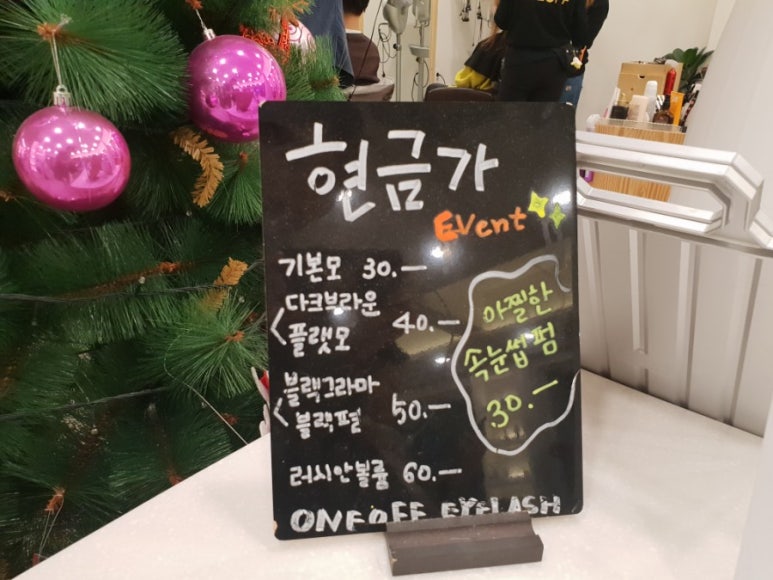 현금가
Event
기본모 30.—
다크브라운
플랫모 40.—
블랙그라마
블랙펄 50.—
러시안볼륨 60.—
아찔한
속눈썹 펌
30.—
ONEOFF EYELASH